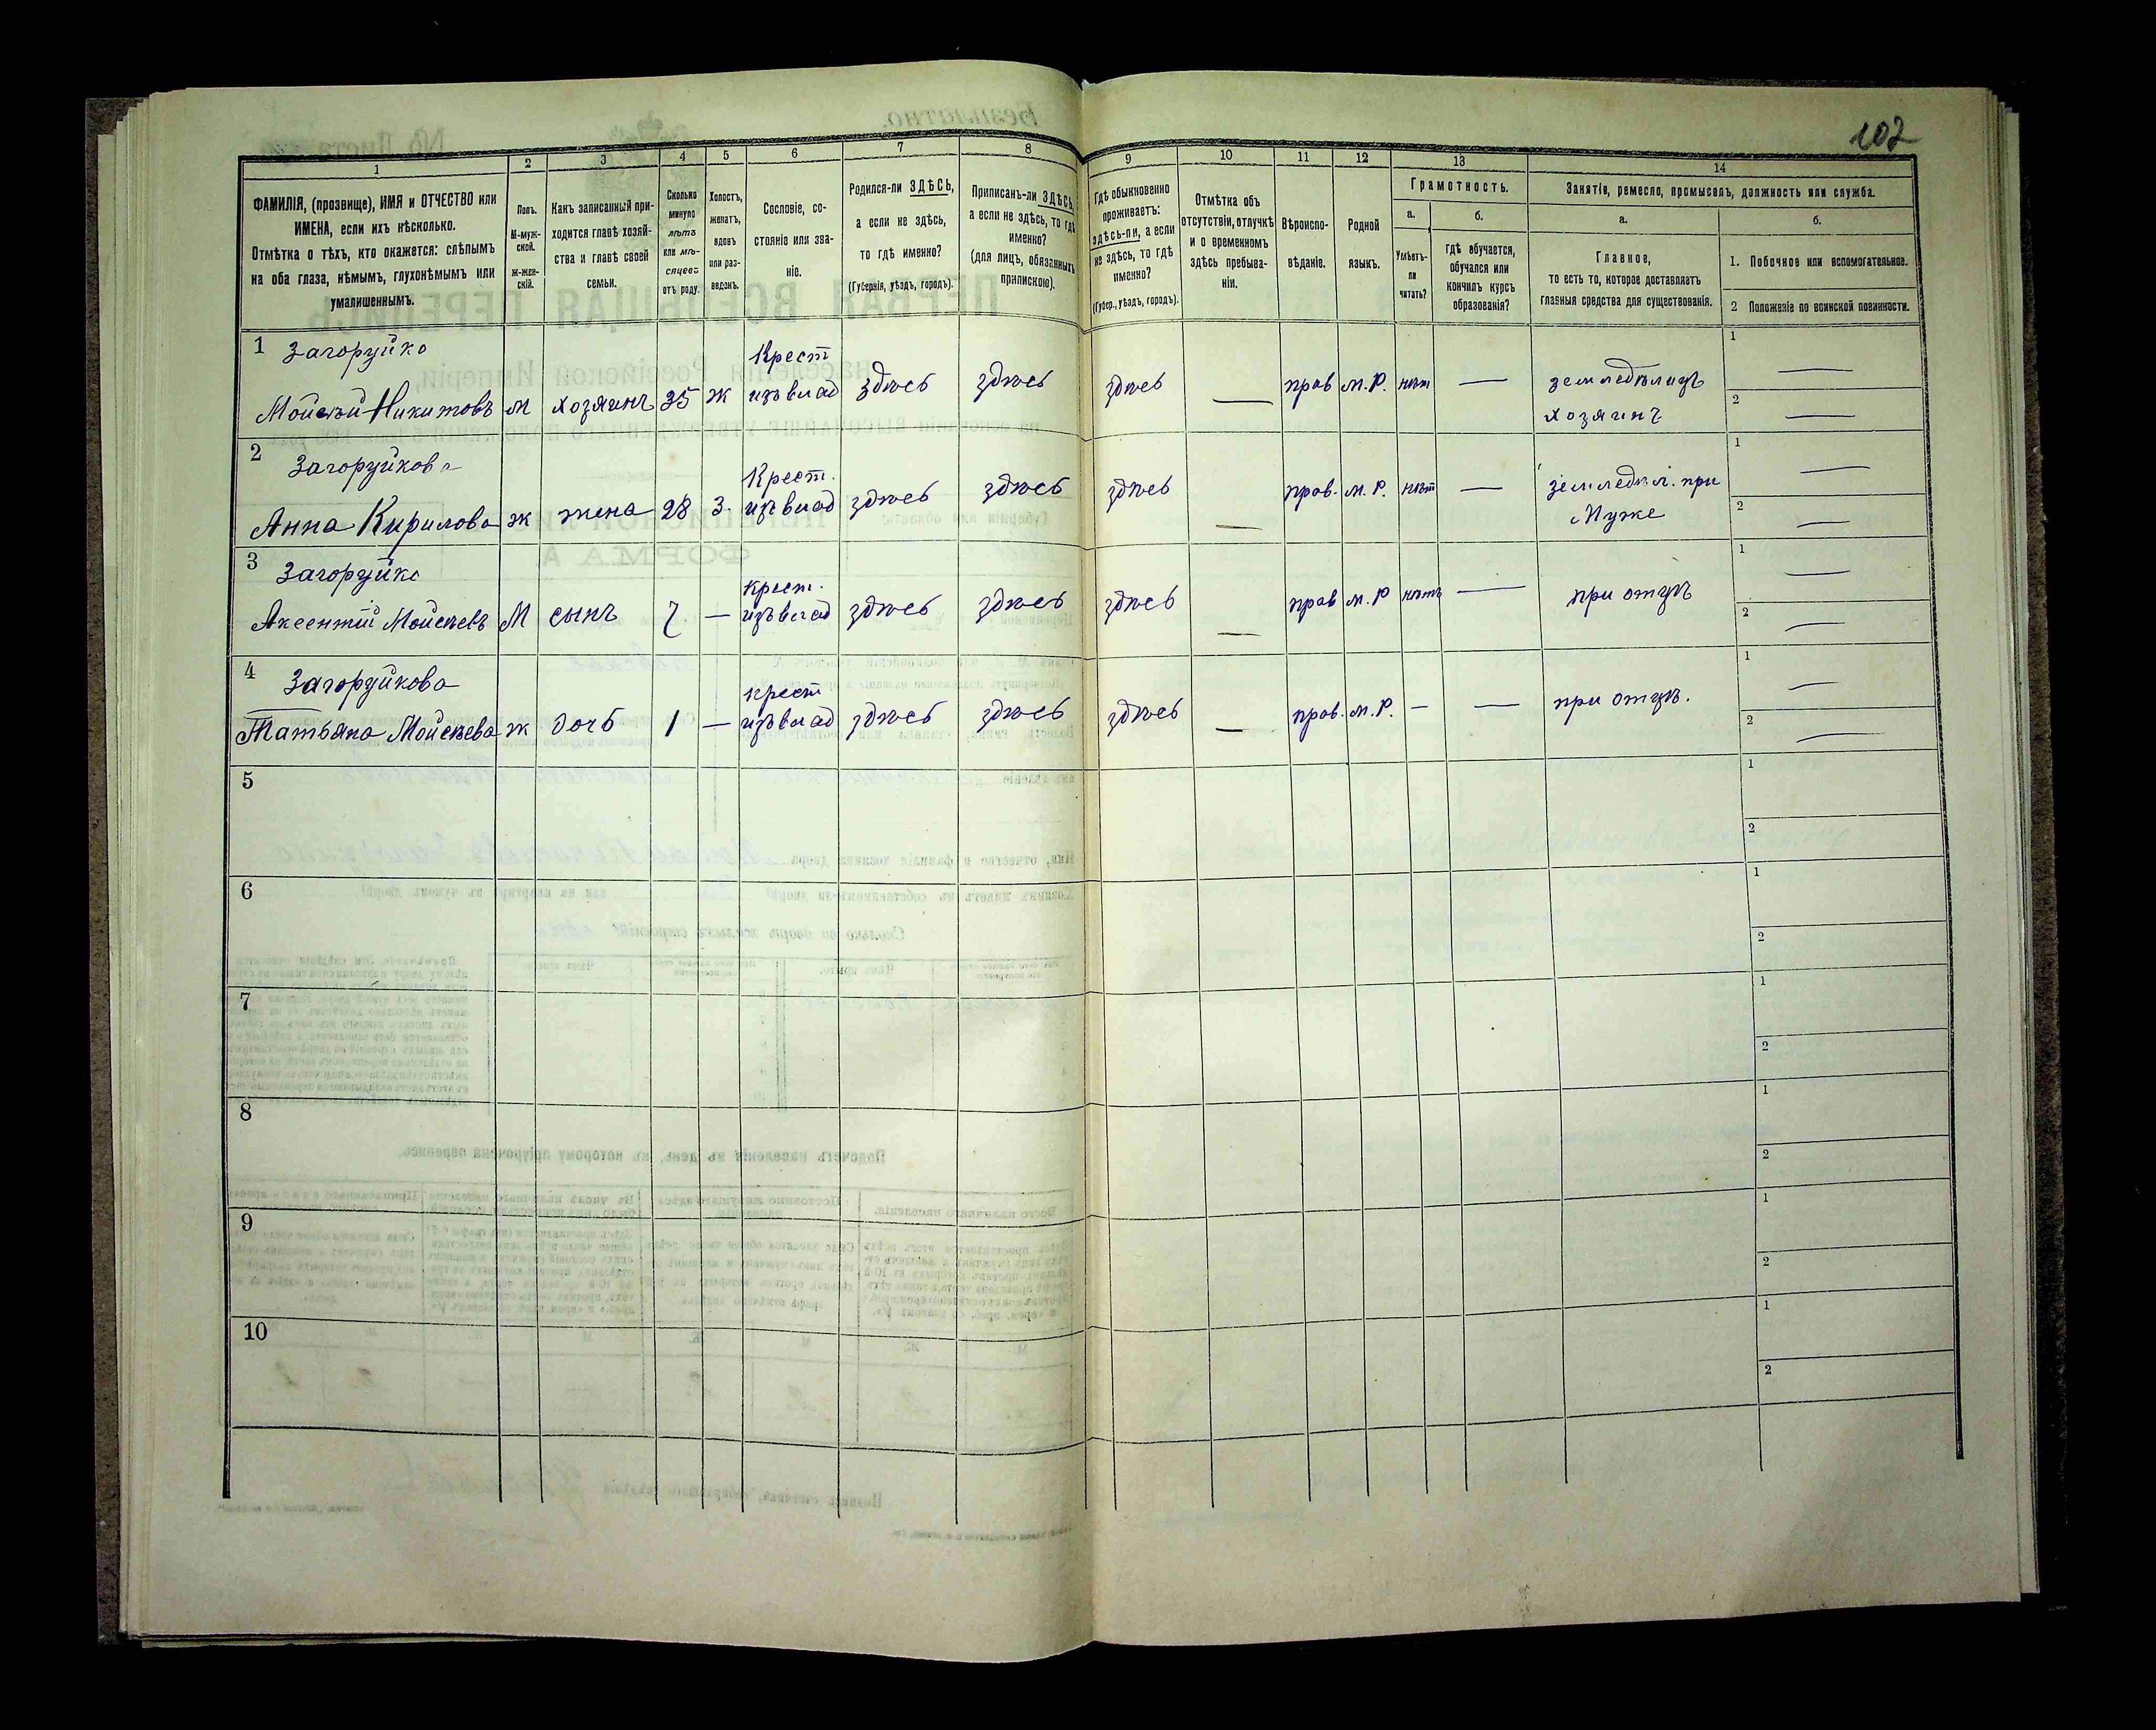 107
1 2 3 4 5 6 7 8 9 10 11 12 13 14
ФАМИЛІЯ, (прозвище), ИМЯ и ОТЧЕСТВО или
ИМЕНА, если ихъ нѣсколько.
Отмѣтка о тѣхъ, кто окажется: слѣпымъ
на оба глаза, нѣмымъ, глухонѣмымъ или
умалишеннымъ.
Полъ.
М-муж-
ской.
Ж-жен-
скій.
Какъ записанный при-
ходится главѣ хозяй-
ства и главѣ своей
семьи.
Сколько
минуло
лѣтъ
или мѣ-
сяцевъ
отъ роду.
Холостъ,
женатъ,
вдовъ
или раз-
веденъ.
Сословіе, со-
стояніе или зва-
ніе.
Родился-ли ЗДѢСЬ,
а если не здѣсь,
то гдѣ именно?
(Губернія, уѣздъ, городъ).
Приписанъ-ли ЗДѢСЬ,
а если не здѣсь, то гдѣ
именно?
(для лицъ, обязанныхъ
припискою).
Гдѣ обыкновенно
проживаетъ:
здѣсь-ли, а если
не здѣсь, то гдѣ
именно?
(Губер., уѣздъ, городъ).
Отмѣтка объ
отсутствіи, отлучкѣ
и о временномъ
здѣсь пребыва-
ніи.
Вѣроиспо-
вѣданіе.
Родной
языкъ.
Грамотность.
а.
Умѣетъ-
ли
читать?
б.
Гдѣ обучается,
обучался или
кончилъ курсъ
образованія?
Занятіе, ремесло, промыселъ, должность или служба.
а.
Главное,
то есть то, которое доставляетъ
главныя средства для существованія.
б.
1. Побочное или вспомогательное.
2 Положеніе по воинской повинности.
1 Загоруйко Крест 1 —
Мойсей Никитовъ М хозяинъ 35 ж изъ влад здѣсь здѣсь здѣсь — прав м.Р. нѣтъ — земледѣлецъ
хозяинъ 2 —
2 Загоруйкова Крест. 1 —
Анна Кирилова ж жена 28 З. изъ влад здѣсь здѣсь здѣсь — прав. м.Р. нѣтъ — земледѣл. при
Муже 2 —
3 Загоруйко крест. 1 —
Аксентий Мойсеевъ М сынъ 7 — изъ влад здѣсь здѣсь здѣсь — прав м.Р нѣтъ — при отцѣ
2 —
4 Загоруйкова крест 1 —
Татьяна Мойсеева ж дочь 1 — изъ влад здѣсь здѣсь здѣсь — прав. м.Р. — — при отцѣ.
2 —
5 1
2
6 1
2
7 1
2
8 1
2
9 1
2
10 1
2